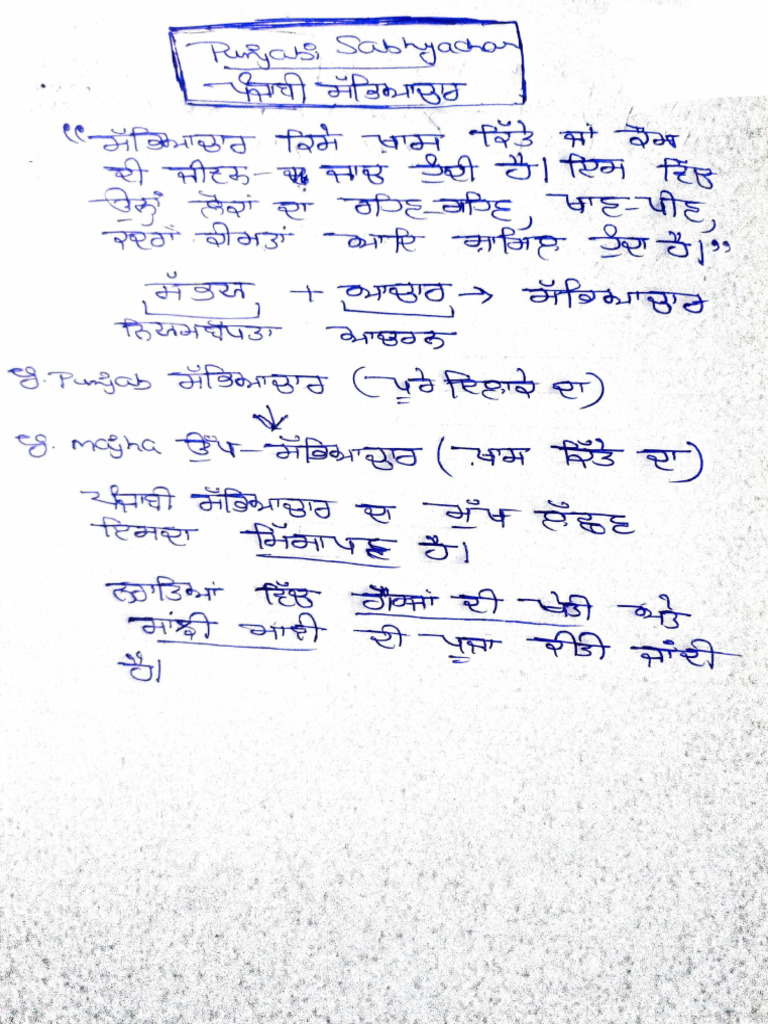 Punjabi Sabhyachar
ਪੰਜਾਬੀ ਸੱਭਿਆਚਾਰ
“ਸੱਭਿਆਚਾਰ ਕਿਸੇ ਖ਼ਾਸ ਕਿੱਤੇ ਜਾਂ ਕੌਮ
ਦੀ ਜੀਵਨ- ਜਾਚ ਹੁੰਦੀ ਹੈ। ਇਸ ਵਿੱਚ
ਉਨ੍ਹਾਂ ਲੋਕਾਂ ਦਾ ਰਹਿਣ-ਸਹਿਣ, ਖਾਣ-ਪੀਣ,
ਕਦਰਾਂ ਕੀਮਤਾਂ ਆਦਿ ਸ਼ਾਮਿਲ ਹੁੰਦਾ ਹੈ।”
ਸੱਭਯ + ਆਚਾਰ → ਸੱਭਿਆਚਾਰ
ਨਿਯਮਬੱਧਤਾ ਆਚਰਨ
eg. Punjab ਸੱਭਿਆਚਾਰ (ਪੂਰੇ ਇਲਾਕੇ ਦਾ)
↓
eg. majha ਉੱਪ-ਸੱਭਿਆਚਾਰ (ਖ਼ਾਸ ਕਿੱਤੇ ਦਾ)
ਪੰਜਾਬੀ ਸੱਭਿਆਚਾਰ ਦਾ ਮੁੱਖ ਲੱਛਣ
ਇਸਦਾ ਮਿੱਸਾਪਣ ਹੈ।
ਨਰਾਤਿਆਂ ਵਿੱਚ ਗੌਰਜਾਂ ਦੀ ਖੇਤੀ ਅਤੇ
ਸਾਂਝੀ ਮਾਈ ਦੀ ਪੂਜਾ ਕੀਤੀ ਜਾਂਦੀ
ਹੈ।